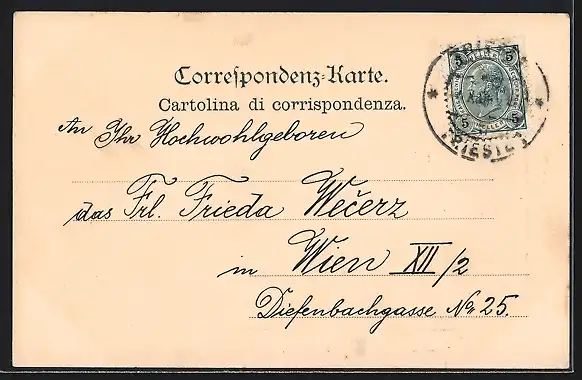 Correspondenz-Karte.
Cartolina di corrispondenza.
An Ihr Hochwohlgeboren
das Frl. Frieda Wečerz
in Wien XII/2
Diefenbachgasse No 25.
5 5
5 5
TRIESTE